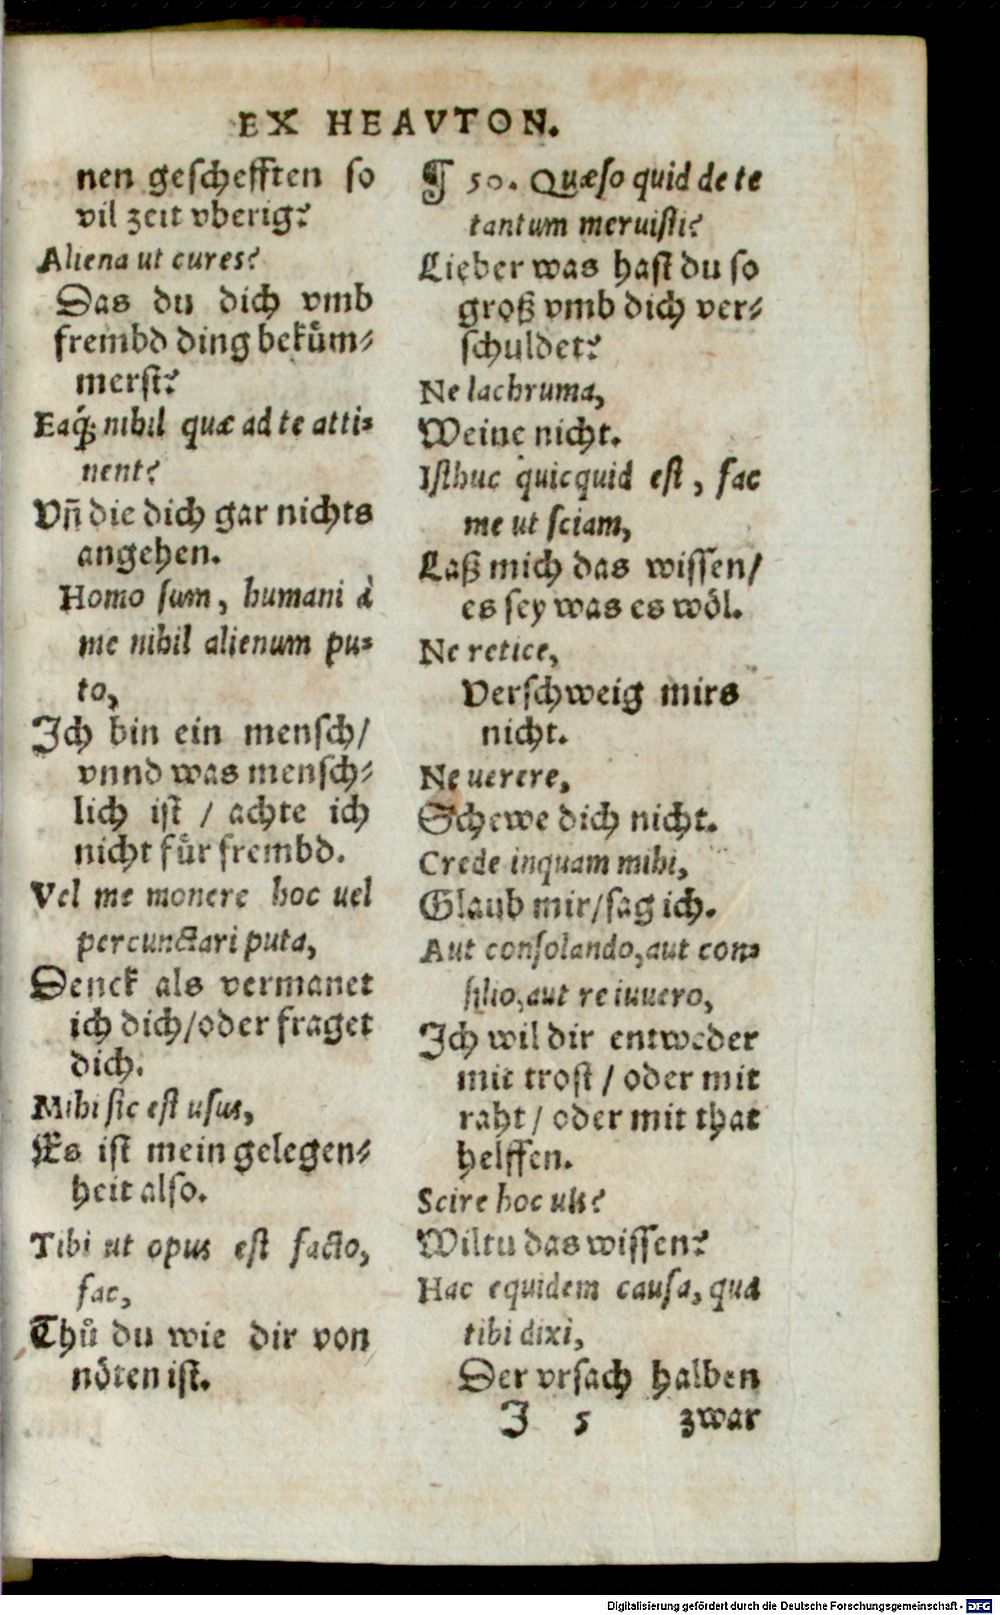 EX HEAVTON.
nen geschefften so
vil zeit vberig?
Aliena ut cures?
Das du dich vmb
frembd ding bekuͤm⸗
merst?
Eaq́; nihil quæ ad te atti⸗
nent?
Vñ die dich gar nichts
angehen.
Homo sum, humani à
me nihil alienum pu⸗
to,
Ich bin ein mensch/
vnnd was mensch⸗
lich ist / achte ich
nicht fuͤr frembd.
Vel me monere hoc uel
percunctari puta,
Denck als vermanet
ich dich/oder fraget
dich.
Mihi sic est usus,
Es ist mein gelegen⸗
heit also.
Tibi ut opus est facto,
fac,
Thuͦ du wie dir von
noͤten ist.
¶ 50. Quæso quid de te
tantum meruisti?
Lieber was hast du so
groß vmb dich ver⸗
schuldet?
Ne lachruma,
Weine nicht.
Isthuc quicquid est, fac
me ut sciam,
Laß mich das wissen/
es sey was es woͤl.
Ne retice,
Verschweig mirs
nicht.
Ne uerere,
Schewe dich nicht.
Crede inquam mihi,
Glaub mir/sag ich.
Aut consolando, aut con⸗
silio, aut re iuuero,
Ich wil dir entweder
mit trost / oder mit
raht / oder mit that
helffen.
Scire hoc uis?
Wiltu das wissen?
Hac equidem causa, qua
tibi dixi,
Der vrsach halben
J 5 zwar
Digitalisierung gefördert durch die Deutsche Forschungsgemeinschaft - DFG